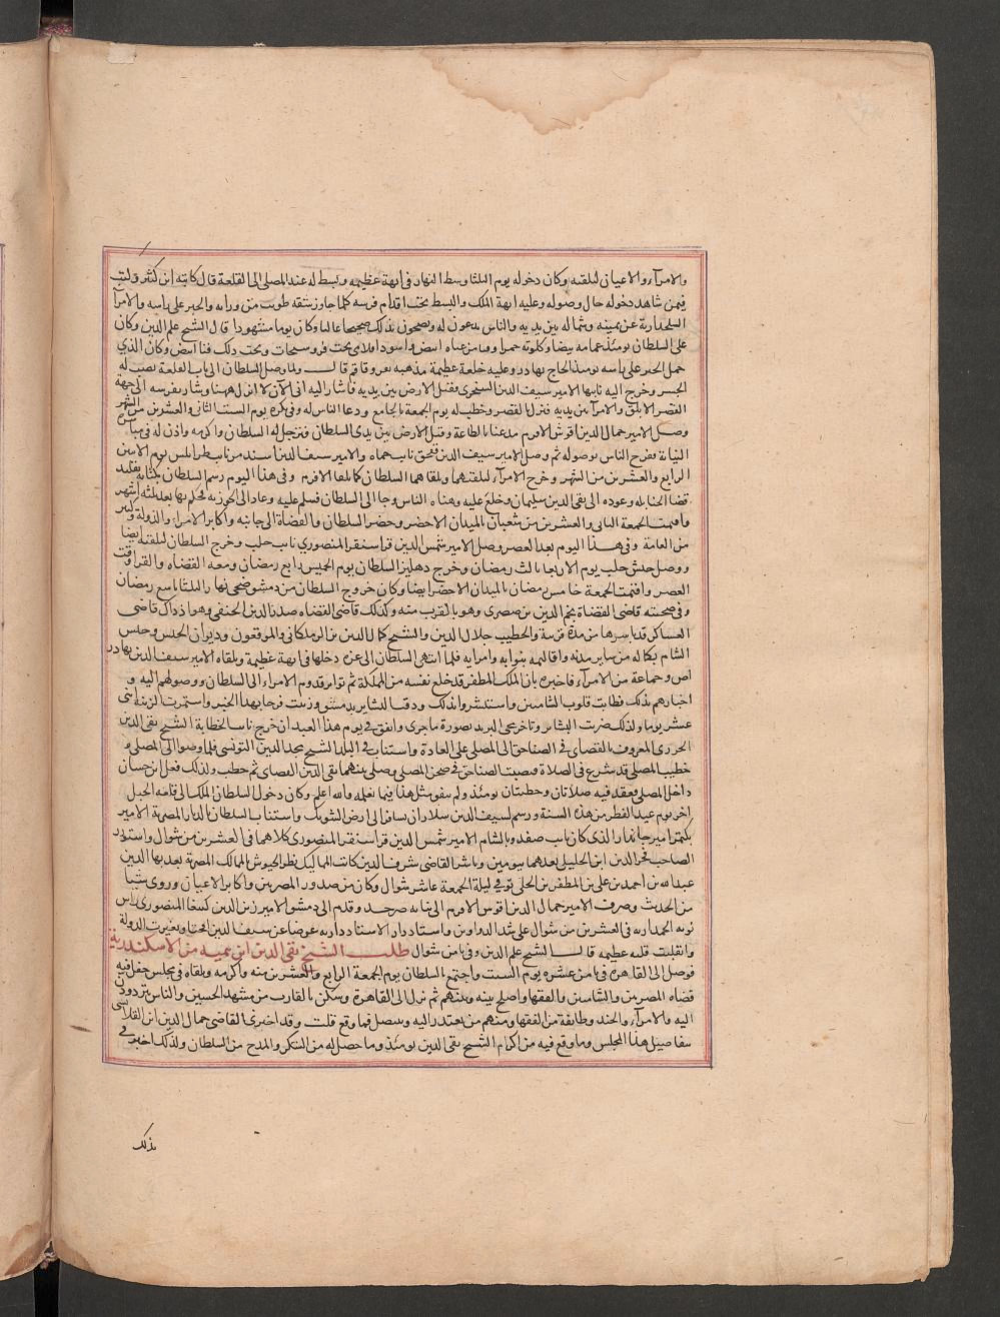 والامرآء والاعيان لتلقيه وكان دخوله يوم الثلثا وسط النهار في ابهة عظيمه وبسط له عند المصلى الى القلعة قال كاتبه ابن كثير وكنت
فيمن شاهد دخوله حال وصوله وعليه ابهة الملك والبسط تحت اقدام فرسه كلما جاوز شقه طويت من ورائه والجتر على راسه والامرآ
السلحدارية عن يمينه وشماله بين يديه والناس يدعون له ويضجون بذلك ضجيجا عاليا وكان يوما مشهودا قال الشيخ علم الدين وكان
على السلطان يومئذ عمامه بيضا وكلوته حمرا
حمل الجتر على راسه يومئذ الحاج بهادر وعليه خلعة عظيمة مذهبه بفرو قاقم قالــ ولما وصل السلطان الى باب القلعة نصب له
الجسر وخرج اليه نايبها الامير سيف الدين السنجري وقبل الارض بين يديه فاشار اليه اني الآن لا انزل ههنا وسار بفرسه الى جهة
القصر الابلق والامرآ بين يديه فنزل بالقصر وخطب له يوم الجمعة بالجامع ودعا الناس له وفي بكرة يوم السبت الثاني والعشرين من الشهر
وصل الامير جمال الدين اقوش الافرم مذعنا بالطاعة وقبل الارض بين يدي السلطان فترجل له السلطان واكرمه واذن له في مباشرة
النيابة وفرح الناس بوصوله ثم وصل الامير سيف الدين قبجق نايب حماه والامير سيف الدين اسندمر نايب طرابلس يوم الاثنين
الرابع والعشرين من الشهر وخرج الامرآء لتلقيهما وتلقاهما السلطان كما تلقا الافرم وفي هذا اليوم رسم السلطان بكتابة تقليد
قضا الحنابله وعوده الى تقي الدين سليمان وخلع عليه وهناه الناس وجا الى السلطان فسلم عليه وعاد الى الجوزيه فحكم بها بعد ثلثه اشهر
واقيمت الجمعة الثاني والعشرين من شعبان بالميدان الاخضر وحضر السلطان والقضاة الى جانبه واكابر الامرا والدولة وكثير
من العامة وفي هــذا اليوم بعد العصر وصل الامير شمس الدين قراسنقر المنصوري نايب حلب وخرج السلطان لتلقيه ايضا
ووصل جيش حلب يوم الاربعا ثالث رمضان وخرج دهليز السلطان يوم الخميس رابع رمضان ومعه القضاه والقرا وقت
العصر واقيمت الجمعة خامس رمضان بالميدان الاخضر ايضا وكان خروج السلطان من دمشق ضحى نهار الثلثا تاسع رمضان
وفي صحبته قاضى القضاة نجم الدين بن صصرى وهو بالقرب منه وكذلك قاضى القضاه صدر الدين الحنفي وهو اذ ذاك قاضى
العساكر قد باشرها من مدة قريبة والخطيب جلال الدين والشيخ كمال الدين بن الزملكاني والموقعون وديوان الجيش وجيش
الشام بكماله من ساير مدنه واقاليمه بنوابه وامرايه فلما انتهى السلطان الى غزه دخلها في ابهة عظيمة وتلقاه الامير سيف الدين بهادر
اص وجماعة من الامرآء فاخبره بان الملك المظفر قد خلع نفسه من المملكة ثم تواتر قدوم الامراء الى السلطان ووصولهم اليه و
اخبارهم بذلك فطابت قلوب الشاميين واستبشروا بذلك ودقت البشاير بدمشق وزينت فرحا بهذا الخبر واستمرت الزينة اثنى
عشر يوما ولذلك ضربت البشاير وتاخر مجى البريد بصورة ما جرى واتفق في يوم هذا العيد ان خرج نايب الخطابة الشيخ تقي الدين
الجزري المعروف بالمقصاى في الصناجق الى المصلى على العادة واستناب في البلد الشيخ مجد الدين التونسى فلما وصوا الى المصلى و
خطيب المصلى قد شرع في الصلاة فنصبت الصناجق في صحن المصلى وصلى بينهما تقي الدين المقصاى ثم خطب وكذلك فعل ابن حسان
داخل المصلى فعقد فيه صلاتان وخطبتان يومئذ ولم يتفق مثل هذا فيما نعلمه والله اعلم وكان دخول السلطان الملك الى قلعة الجبل
اخر يوم عيد الفطر من هذه السنة ورسم لسيف الدين سلار ان يسافر الى ارض الشوبك واستناب السلطان بالديار المصرية الامير
بكتمر امير جاندار الذي كان نايب صفد وبالشام الامير شمس الدين قراسنقر المنصورى كلاهما في العشرين من شوال واستوزر
الصاحب فخر الدين ابن الخليلى بعدهما بيومين وباشر القاضى شرف الدين كاتب المماليك نظر الجيوش بالممالك المصرية بعد بها الدين
عبدالله بن احمد بن علي بن المظفر بن الحلى توفي ليلة الجمعة عاشر شوال وكان من صدور المصريين واكابر الاعيان وروى شيا
من الحديث وصرف الامير جمال الدين اقوش الافرم الى نيابة صرخد وقدم الى دمشق الامير زين الدين كتبغا المنصوري راس
نوبه الجمداريه في العشرين من شوال على شد الدواوين واستاد دار الاستاد داريه عوضا عن سيف الدين وتغيرت الدولة
وانقلبت قلبه عظيمه قالــ الشيخ علم الدين وفي ثامن شوال طلــب الشيخ تقى الدين ابن تيميه من الاسكندرية
فوصل الى القاهرة في ثامن عشره يوم السبت واجتمع بالسلطان يوم الجمعة الرابع والعشرين منه واكرمه وتلقاه في مجلس حفل فيه
قضاه المصريين والشاميين والفقها واصلح بينه وبينهم ثم نزل الى القاهرة وسكن بالقرب من مشهد الحسين والناس يترددون
اليه والامرآء والجند وطايفة من الفقها ومنهم من يعتذر اليه ويتنصل مما وقع قلت وقد اخبرني القاضى جمال الدين ابن القلانسى
بتفاصيل هذا المجلس وما وقع فيه من اكرام الشيخ تقى الدين يومئذ وما حصل له من الشكر والمدح من السلطان وكذلك اخبرني
بذلك